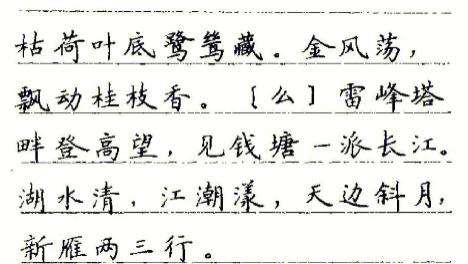 枯荷叶底鹭鸶藏。金风荡，
飘动桂枝香。〔么〕雷峰塔
畔登高望，见钱塘一派长江。
湖水清，江潮漾，天边斜月，
新雁两三行。